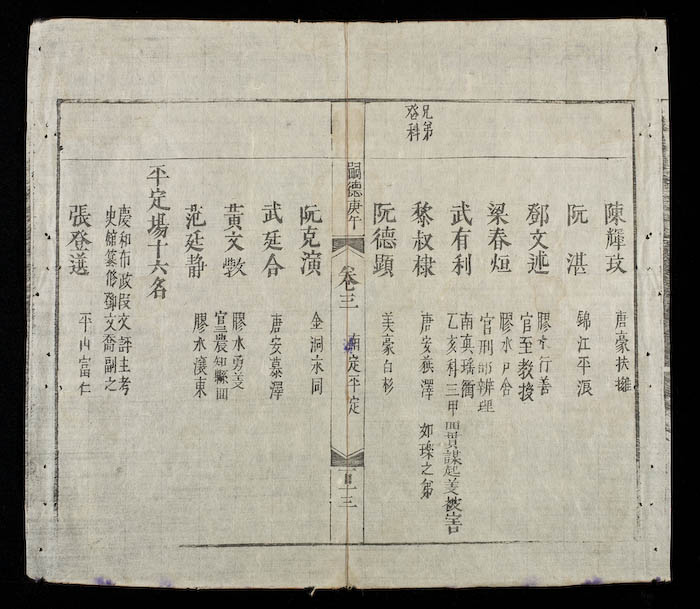 陳輝玟　唐豪扶擁
阮湛　錦江平浪
鄧文述　膠水行善
官至教授
梁春烜　膠水戶舍
官刑部辨理
武有利　南真瑤衡
乙亥科三甲而貫謀起美被害
兄弟
登科
黎叔棣　唐安慕澤　如璪之弟
阮德顯　美豪白杉
嗣德庚午　卷三　南定平定　三
阮克演　金洞永同
武廷合　唐安慕澤
黃文斅　膠水勇美
官農知縣
范廷静　膠水濩東
平定場十六名
慶和布政段文評主考
史館纂修鄧文喬副之
張登選　平山富仁